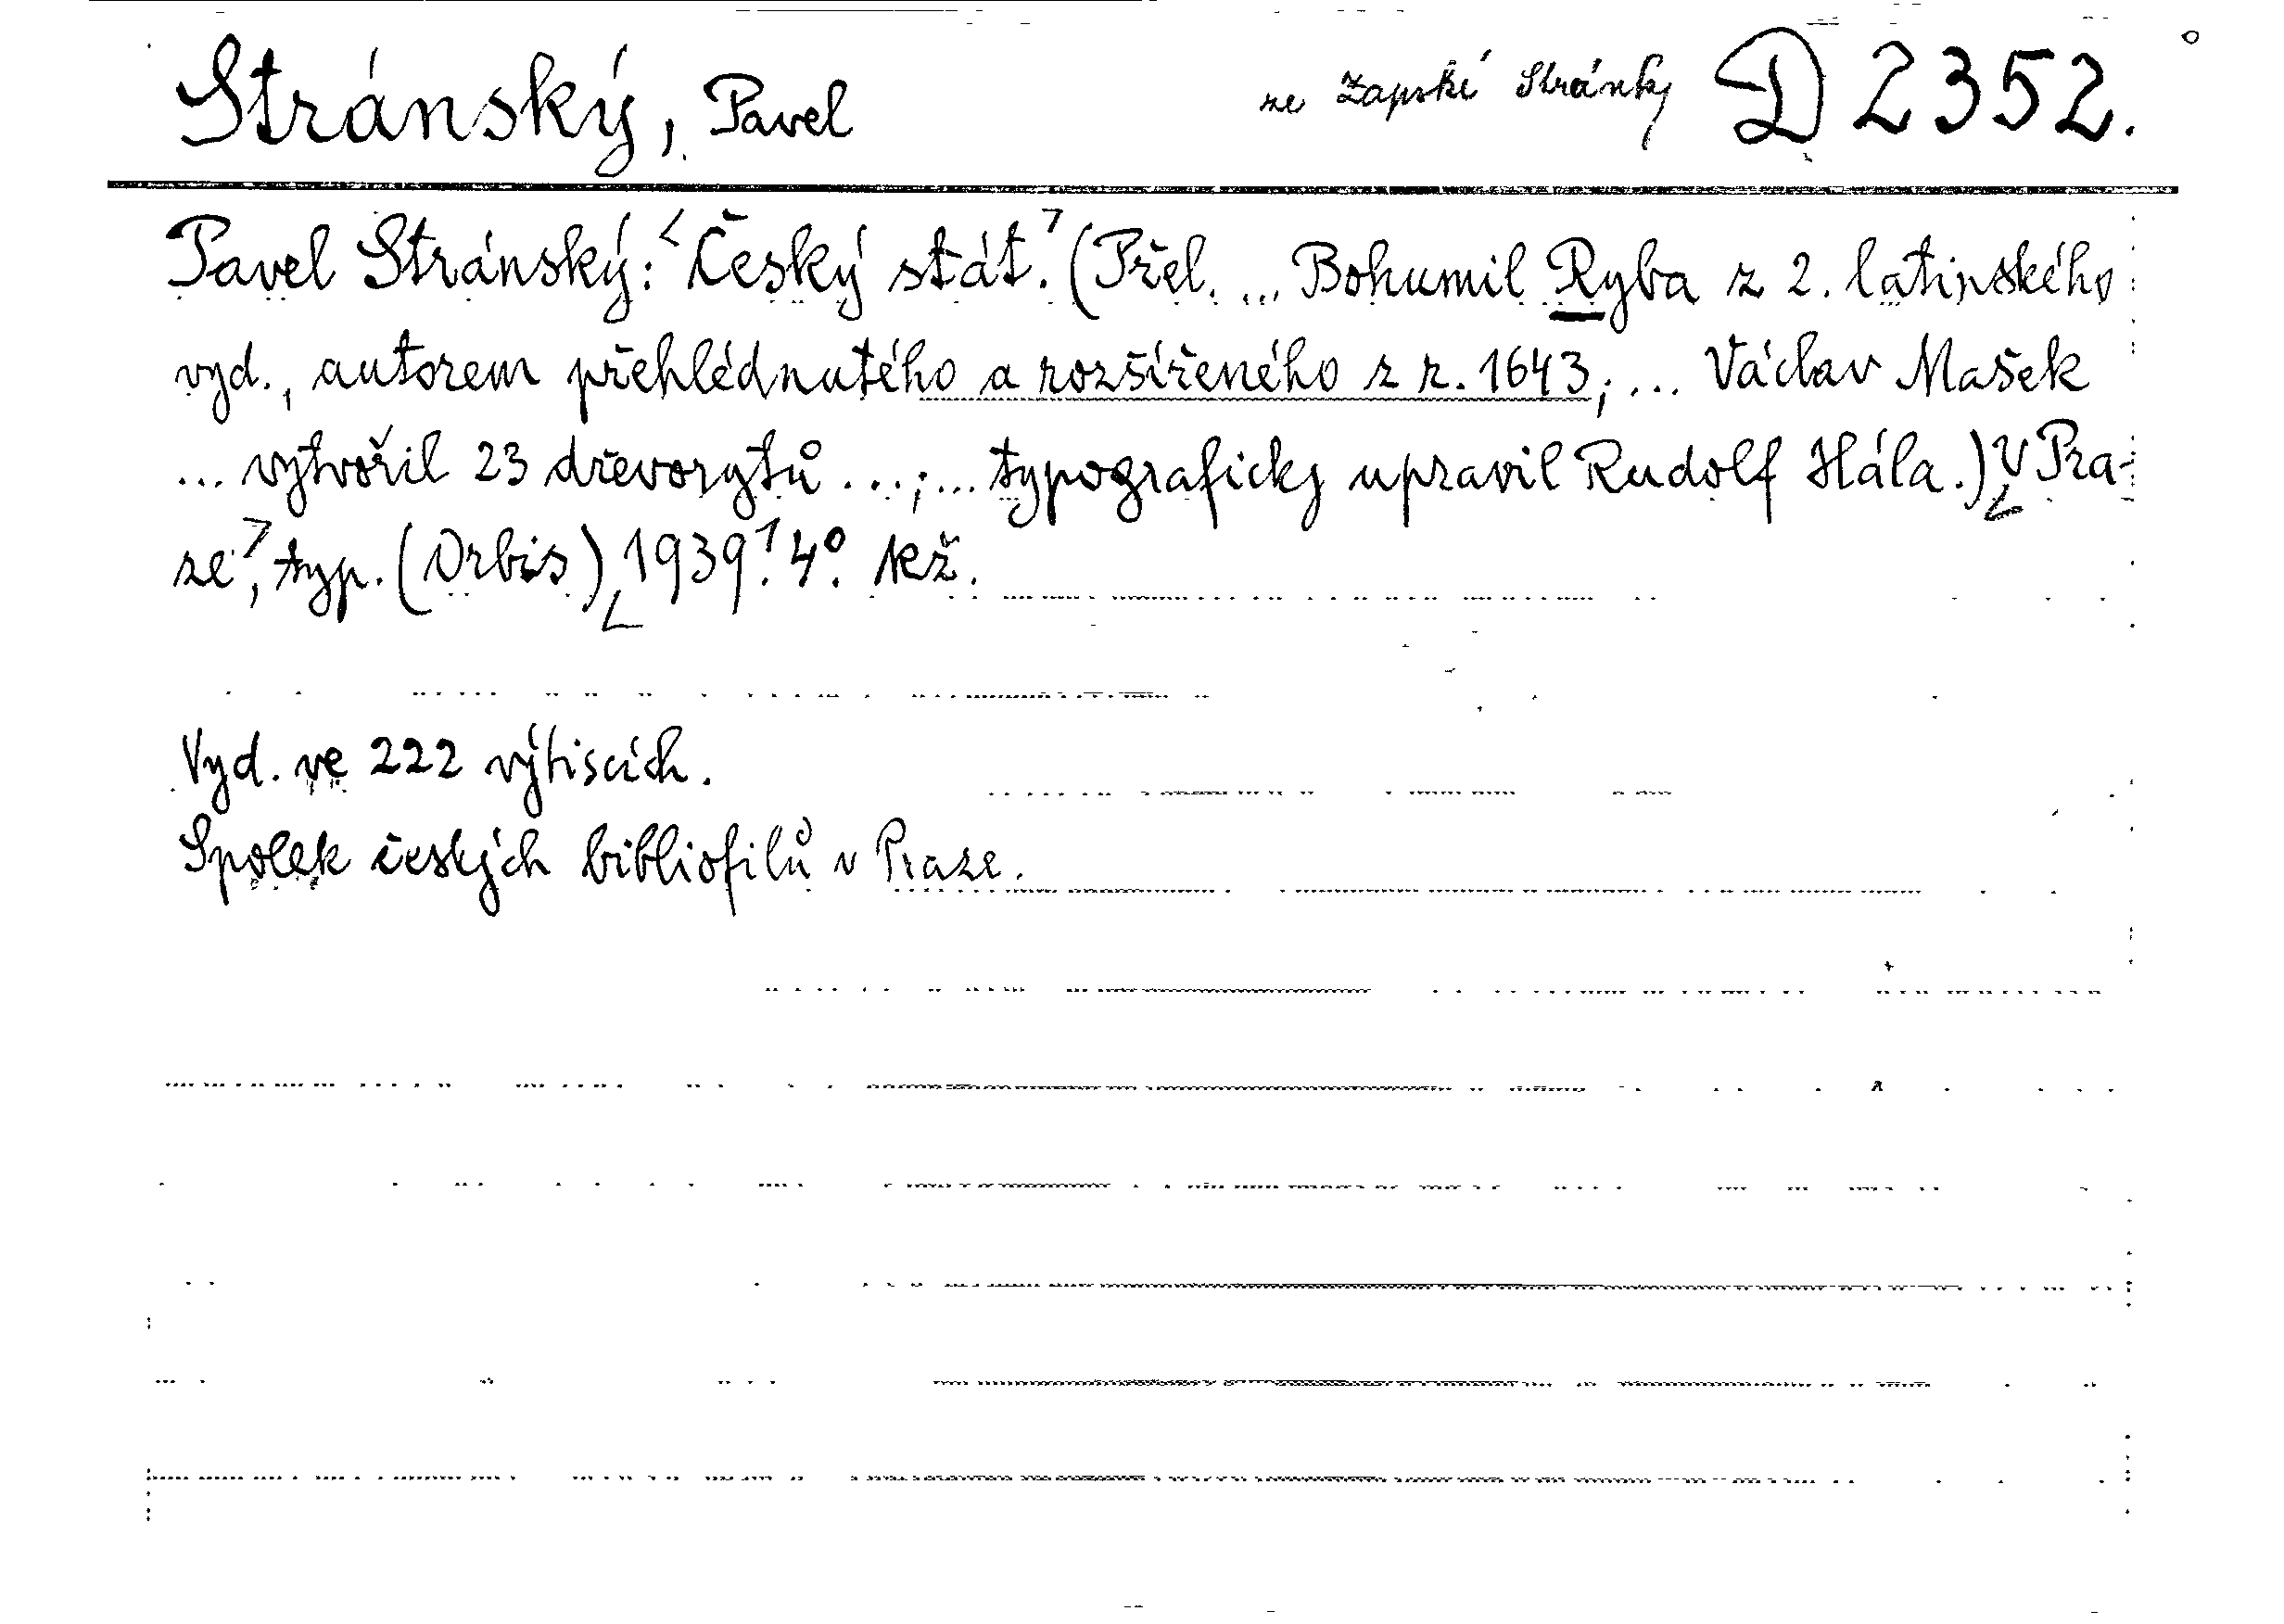 Stránský, Pavel ze Zapské Stránky D 2352.
Pavel Stránský: Český stát. (Přel. ... Bohumil Ryba z 2. latinského
vyd., autorem přehlédnutého a rozšířeného z r. 1643; ... Václav Mašek
... vytvořil 23 dřevorytů ...; ... typograficky upravil Rudolf Hála.) V Pra-
ze, typ. (Orbis) 1939. 4°. Kž.
Vyd. ve 222 výtiscích.
Spolek českých bibliofilů v Praze.